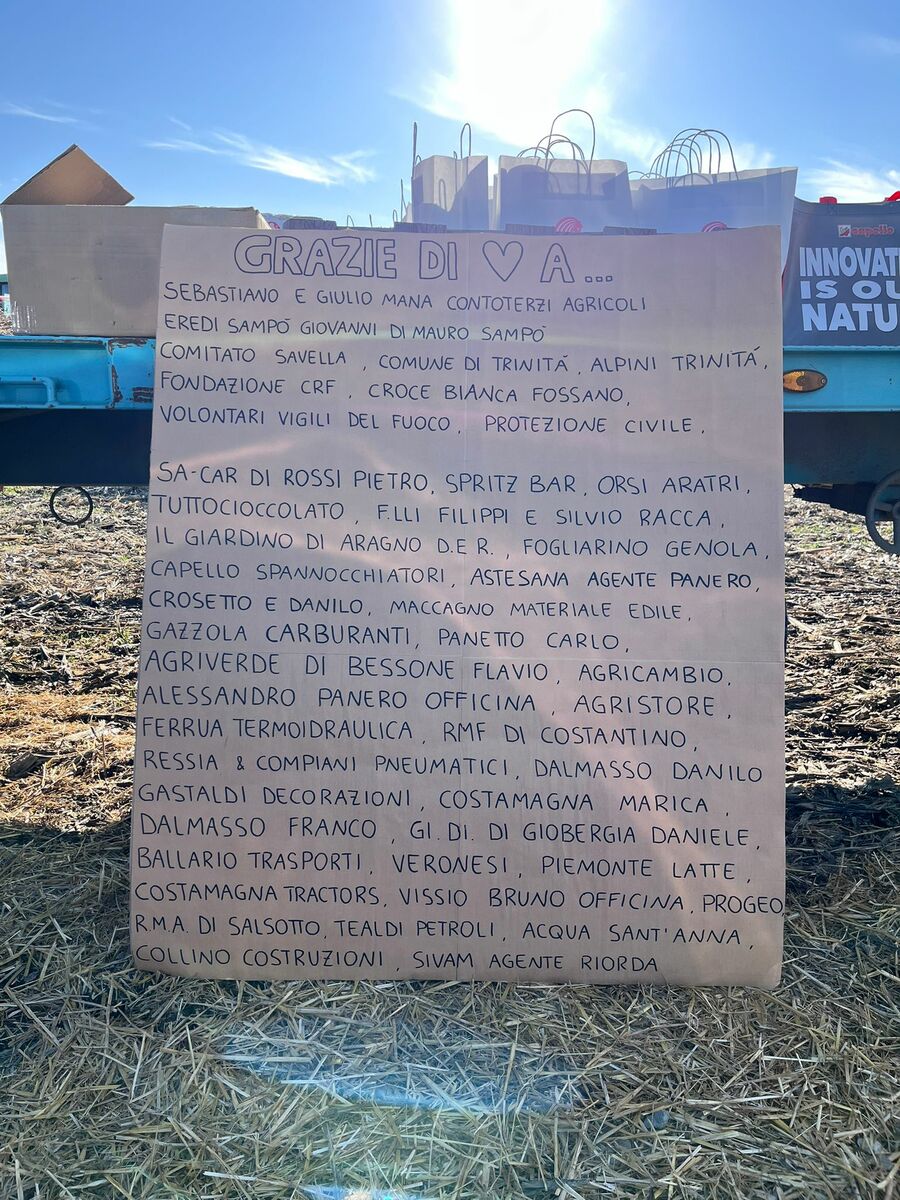 GRAZIE DI ♡ A...
SEBASTIANO E GIULIO MANA CONTOTERZI AGRICOLI
EREDI SAMPÒ GIOVANNI DI MAURO SAMPÒ
COMITATO SAVELLA , COMUNE DI TRINITÁ , ALPINI TRINITÁ ,
FONDAZIONE CRF , CROCE BIANCA FOSSANO,
VOLONTARI VIGILI DEL FUOCO , PROTEZIONE CIVILE ,
SA-CAR DI ROSSI PIETRO, SPRITZ BAR , ORSI ARATRI ,
TUTTOCIOCCOLATO , F.LLI FILIPPI E SILVIO RACCA ,
IL GIARDINO DI ARAGNO D.E R. , FOGLIARINO GENOLA ,
CAPELLO SPANNOCCHIATORI , ASTESANA AGENTE PANERO,
CROSETTO E DANILO, MACCAGNO MATERIALE EDILE,
GAZZOLA CARBURANTI, PANETTO CARLO,
AGRIVERDE DI BESSONE FLAVIO , AGRICAMBIO,
ALESSANDRO PANERO OFFICINA , AGRISTORE ,
FERRUA TERMOIDRAULICA , RMF DI COSTANTINO,
RESSIA & COMPIANI PNEUMATICI , DALMASSO DANILO
GASTALDI DECORAZIONI , COSTAMAGNA MARICA ,
DALMASSO FRANCO , GI. DI. DI GIOBERGIA DANIELE ,
BALLARIO TRASPORTI , VERONESI , PIEMONTE LATTE ,
COSTAMAGNA TRACTORS, VISSIO BRUNO OFFICINA, PROGEO
R.M.A. DI SALSOTTO, TEALDI PETROLI , ACQUA SANT'ANNA ,
COLLINO COSTRUZIONI , SIVAM AGENTE RIORDA
capello
INNOVAT
IS OU
NATU